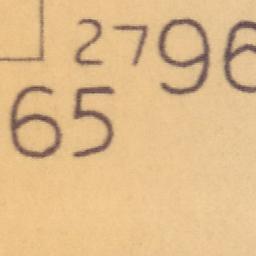 2796
65